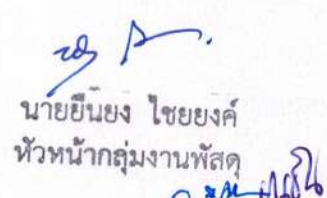 นายยืนยง ไชยยงค์
หัวหน้ากลุ่มงานพัสดุ